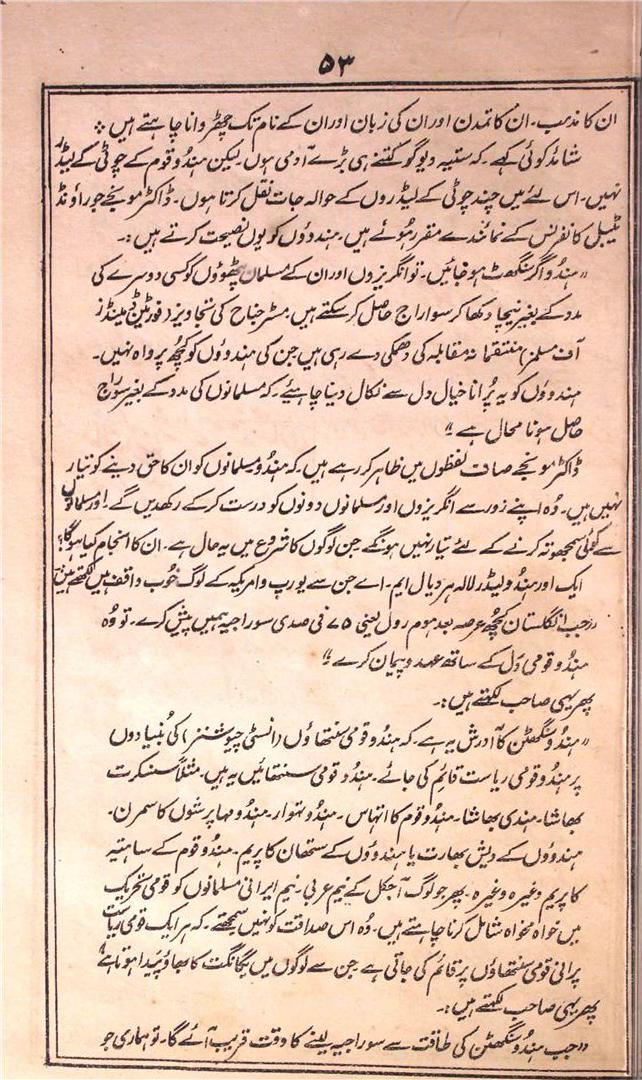 ۵۳
ان کا مذہب۔ ان کا تمدن اور ان کی زبان اور ان کے نام تک چھڑوانا چاہتے ہیں ؞
شائد کوئی کہے۔ کہ ستیہ دیو گو کتنے ہی بڑے آدمی ہوں۔ لیکن ہندو قوم کے چوٹی کے لیڈر
نہیں۔ اس لئے میں چند چوٹی کے لیڈروں کے حوالہ جات نقل کرتا ہوں۔ ڈاکٹر مونجے جو راؤنڈ
ٹیبل کانفرنس کے نمائندے مقرر ہوئے ہیں۔ ہندوؤں کو یوں نصیحت کرتے ہیں:۔
"ہندو اگر سنگھٹت ہو جائیں۔ تو انگریزوں اور ان کے مسلمان پٹھوؤں کو کسی دوسرے کی
مدد کے بغیر نیچا دکھا کر سواراج حاصل کر سکتے ہیں۔ مسٹر جناح کی تجاویز (فورٹین ڈیمینڈز
آف مسلمز) منتقمانہ مقابلہ کی دھمکی دے رہی ہیں جن کی ہندوؤں کو کچھ پرواہ نہیں۔
ہندوؤں کو یہ پُرانا خیال دل سے نکال دینا چاہیئے۔ کہ مسلمانوں کی مدد کے بغیر سوراج
حاصل ہونا محال ہے"
ڈاکٹر مونجے صاف لفظوں میں ظاہر کر رہے ہیں۔ کہ ہندو مسلمانوں کو ان کا حق دینے کو تیار
نہیں ہیں۔ وُہ اپنے زور سے انگریزوں اور مسلمانوں دونوں کو درست کر کے رکھدیں گے۔ اور مسلمانوں
سے کوئی سمجھوتہ کرنے کے لئے تیار نہیں ہونگے۔ جن لوگوں کا شروع میں یہ حال ہے۔ ان کا انجام کیا ہوگا؟
ایک اور ہندو لیڈر لالہ ہر دیال ایم۔ اے جن سے یورپ و امریکہ کے لوگ خُوب واقف ہیں لکھتے ہیں
"جب انگلستان کچھ عرصہ بعد ہوم رول یعنی ۷۵ فی صدی سوراجیہ ہمیں پیش کرے۔ تو وُہ
ہندو قومی دَل کے ساتھ عہد و پیمان کرے"
پھر یہی صاحب لکھتے ہیں:۔
"ہندو سنگھٹن کا آدرش یہ ہے۔ کہ ہندو قومی سنتھاؤں (انسٹی چیوشنز) کی بُنیادوں
پر ہندو قومی ریاست قائم کی جائے۔ ہندو قومی سنتھائیں یہ ہیں۔ مثلاً سنسکرت
بھاشا۔ ہندی بھاشا۔ ہندو قوم کا اتہاس۔ ہندو تہوار۔ ہندو مہا پرشوں کا سمرن۔
ہندوؤں کے دیش بھارت یا ہندوؤں کے ستھان کا پریم۔ ہندو قوم کے ساہتیہ
کا پریم وغیرہ وغیرہ۔ پھر جو لوگ آجکل کے نیم عربی۔ نیم ایرانی مسلمانوں کو قومی تحریک
میں خواہ نخواہ شامل کرنا چاہتے ہیں۔ وُہ اس صداقت کو نہیں سمجھتے۔ کہ ہر ایک قومی ریاست
پرانی قومی سنتھاؤں پر قائم کی جاتی ہے۔ جن سے لوگوں میں یگانگت کا بھاؤ پیدا ہوتا ہے"
پھر یہی صاحب لکھتے ہیں:۔
"جب ہندو سنگھٹن کی طاقت سے سوراجیہ لینے کا وقت قریب آئے گا۔ تو ہماری جو